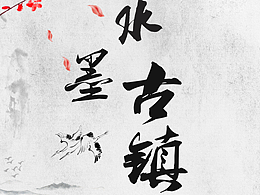 水墨
古镇